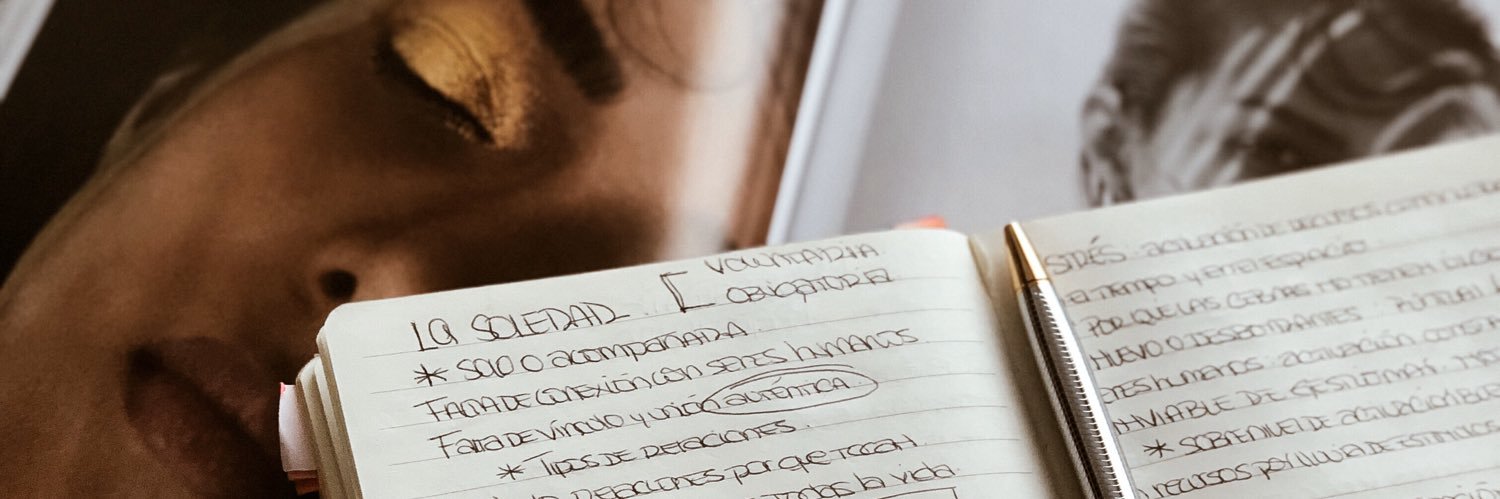 LA SOLEDAD. [ VOLUNTARIA
OBLIGATORIA
* SOLO O ACOMPAÑADA.
FALTA DE CONEXIÓN CON SERES HUMANOS.
FALTA DE VÍNCULO Y UNIÓN AUTÉNTICA.
* TIPOS DE RELACIONES.
RELACIONES POR QUE TOCAN
TODOS LA VIDA
STRÉS: ACTIVACIÓN DE RECURSOS
EL TIEMPO Y EN EL ESPACIO.
PORQUE LAS CEBRAS NO TIENEN
NUEVO O DESBORDANTES
RES HUMANOS: ACTIVACIÓN
NVIABLE DE GESTIONAR.
* SOBRENIVEL DE ACTIVACIÓN
RECURSOS POR LLUVIA DE ESTÍMULOS